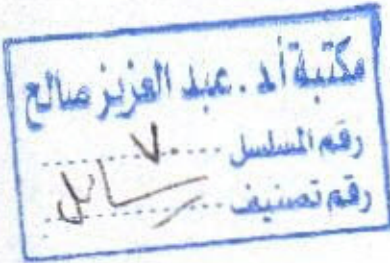 مكتبة أ.د. عبد العزيز صالح
رقم المسلسل ٧٠
رقم تصنيف رسائل